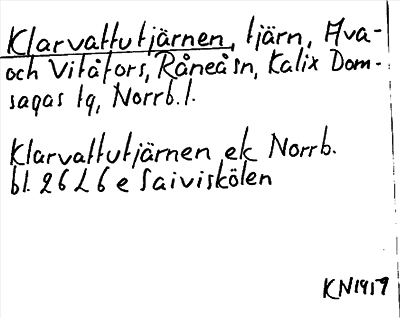 Klarvattutjärnen, tjärn, Hva-
och Vitåfors, Råneå sn, Kalix Dom-
sagas tg, Norrb. l.
Klarvattutjärnen ek Norrb.
bl. 26 L 6 e Saiviskölen
KN1959